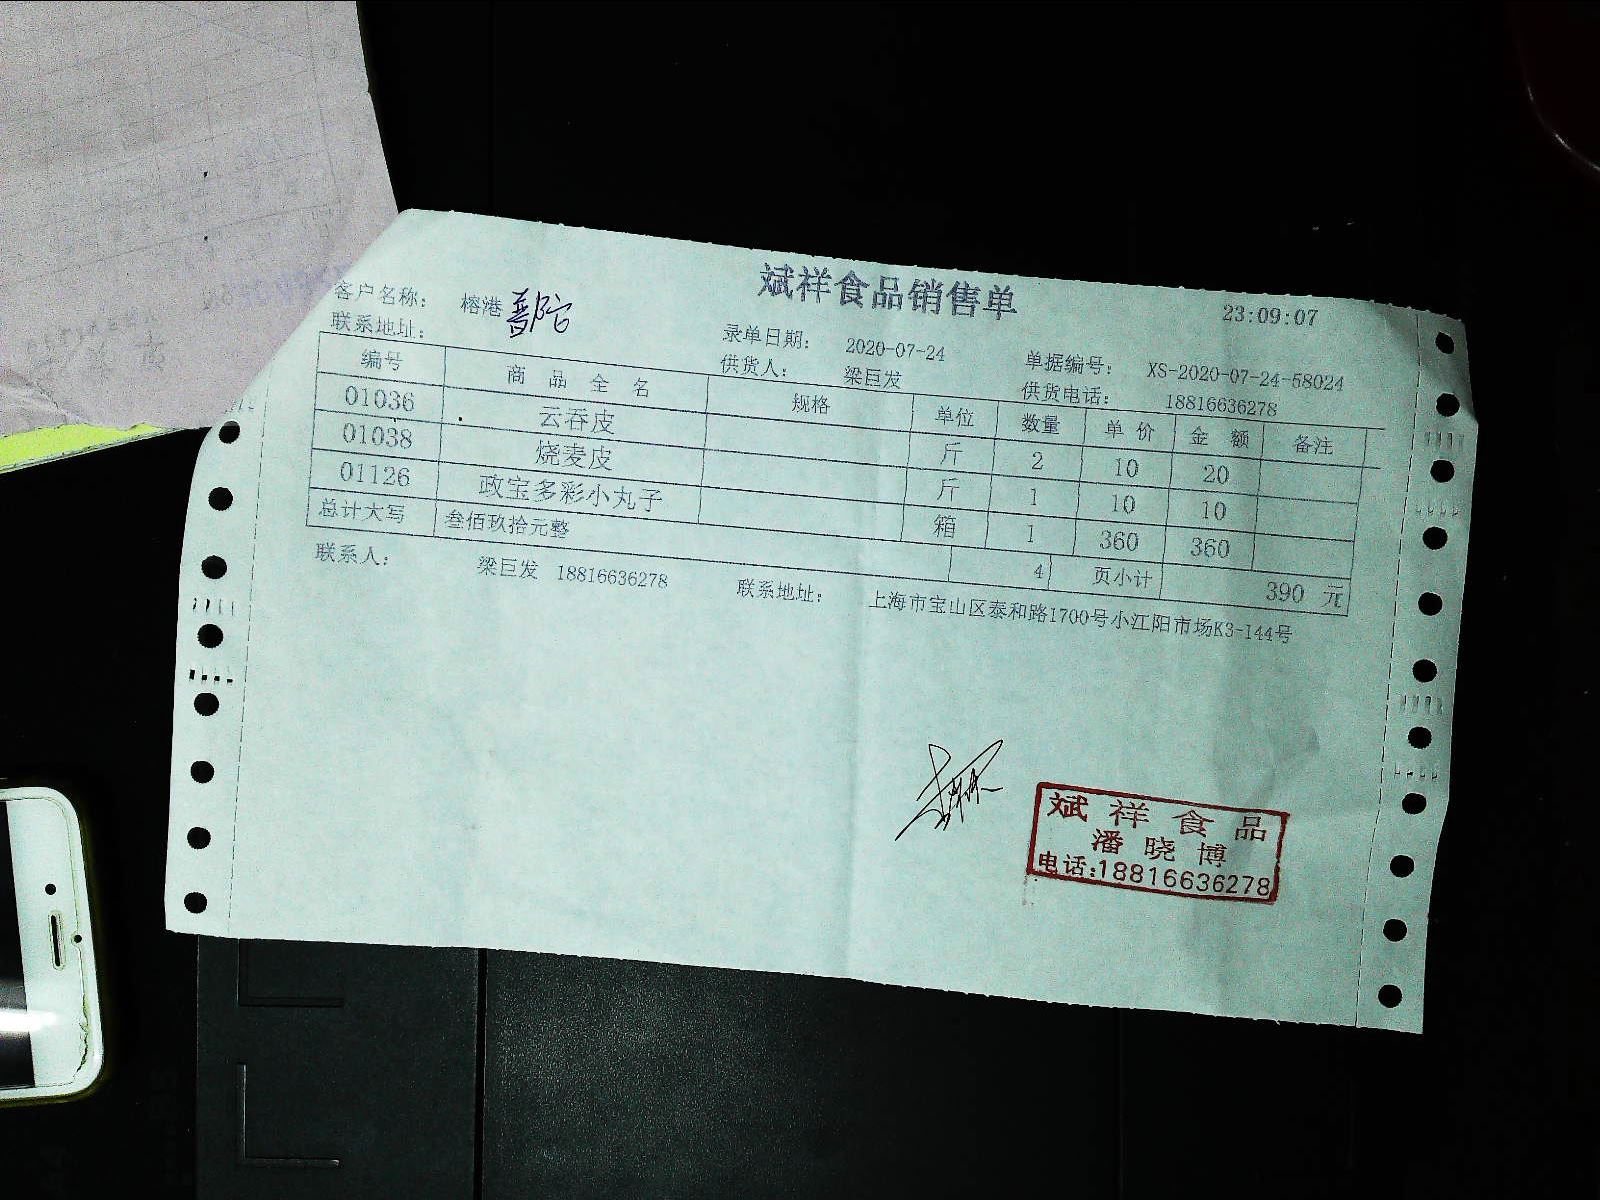 斌祥食品销售单
23:09:07
客户名称: 榕港 普陀 录单日期: 2020-07-24 单据编号: XS-2020-07-24-58024
联系地址: 供货人: 梁巨发 供货电话: 18816636278
编号 商品全名 规格 单位 数量 单价 金额 备注
01036 云吞皮 斤 2 10 20
01038 烧麦皮 斤 1 10 10
01126 政宝多彩小丸子 箱 1 360 360
总计大写 叁佰玖拾元整 4 页小计 390 元
联系人: 梁巨发 18816636278 联系地址: 上海市宝山区泰和路1700号小江阳市场K3-144号
斌祥食品
潘晓博
电话:18816636278